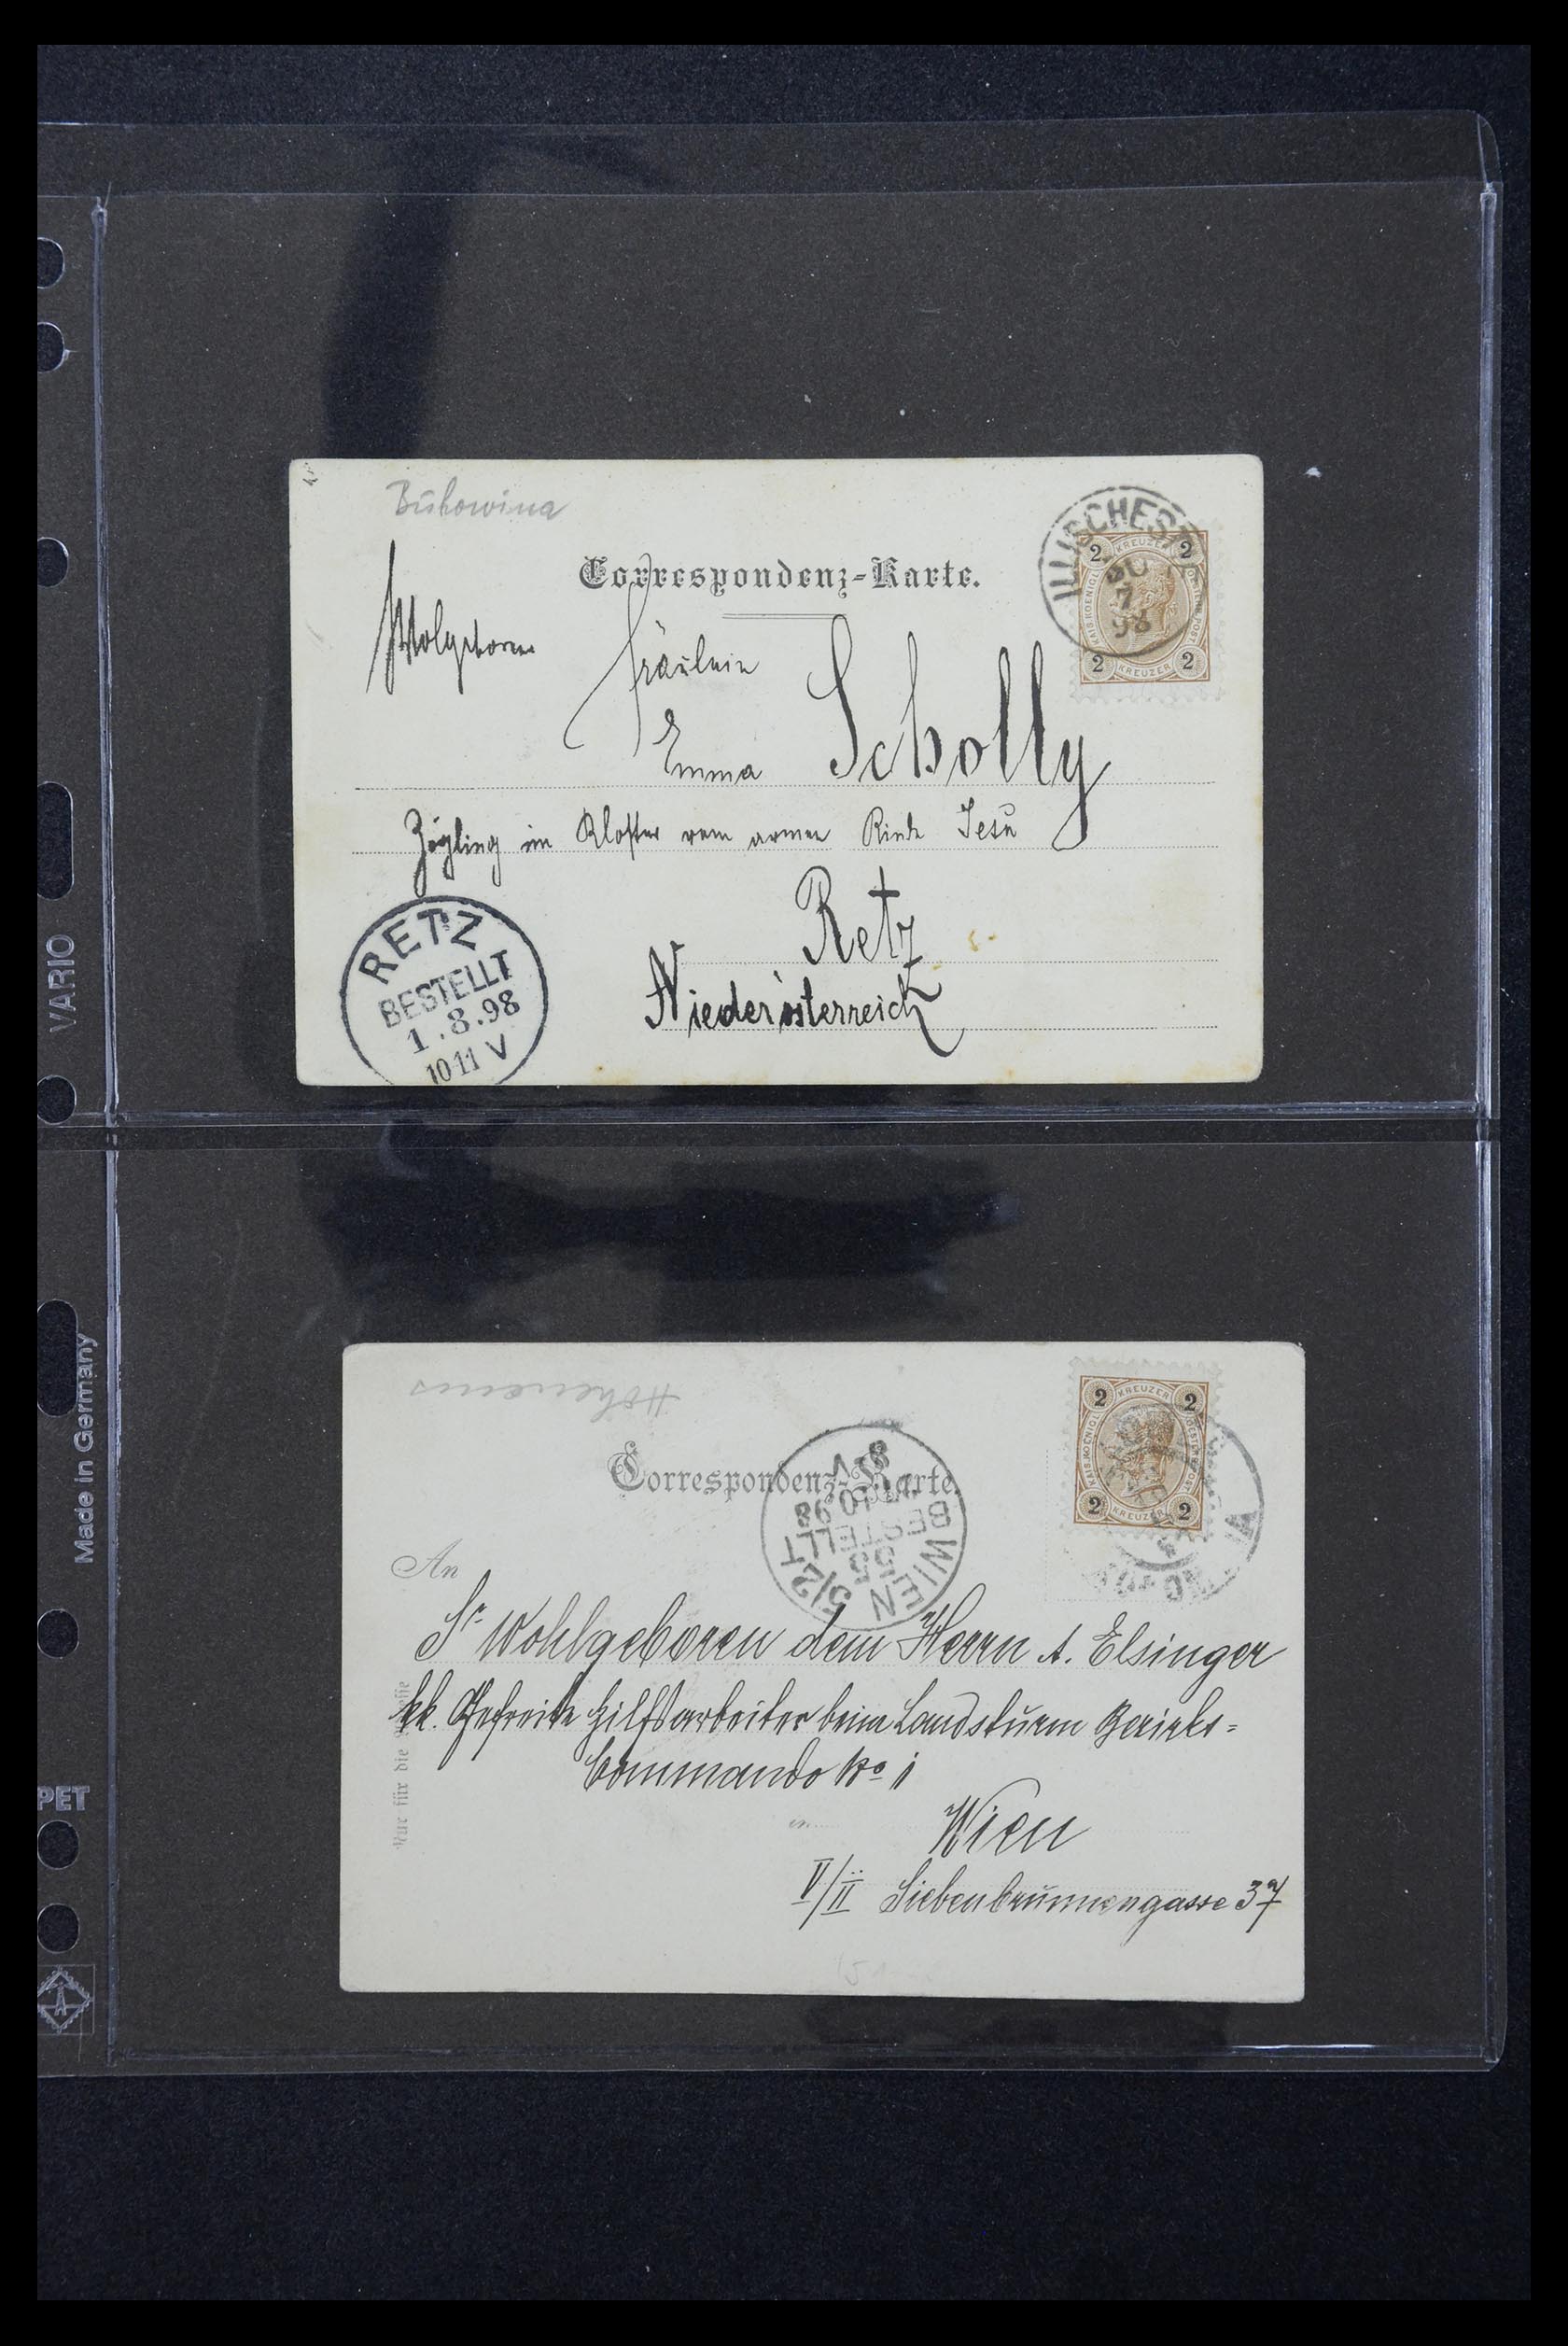 Bukowina
Correspondenz-Karte.
ILLISCHEST
30
7
98
2 KREUZER 2
KAIS. KOENIGL. OESTERR. POST
2 KREUZER 2
Wolgeboren
Fräulein
Emma Scholly
Zögling im Kloster vom armen Kinde Jesu
Retz
Niederösterreich
RETZ
BESTELLT
1.8.98
10-11 V
VARIO
Made in Germany
PET
Hohenems
Correspondenz-Karte.
2 KREUZER 2
KAIS. KOENIGL. OESTERR. POST
2 KREUZER 2
WIEN 5/2
55
BESTELLT
10 98
8 V
An
Sr. Wohlgeboren dem Herrn A. Elsinger
kk. Gefreite Hilfsarbeiter beim Landsturm Bezirks=
Commando No 1
in Wien
V/II Siebenbrunnengasse 37
Nur für die Adresse